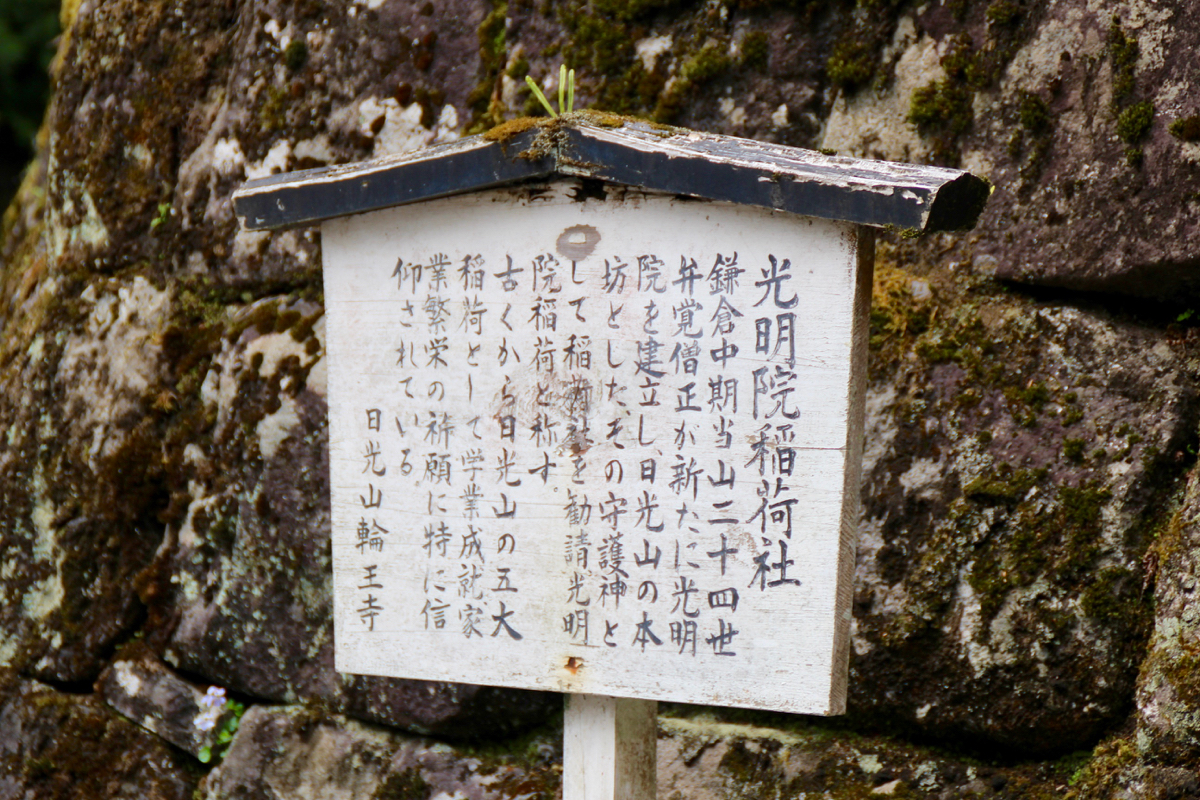 光明院稲荷社
鎌倉中期当山二十四世
弁覚僧正が新たに光明
院を建立し、日光山の本
坊とした、その守護神と
して稲荷社を勧請。光明
院稲荷と称す。
古くから日光山の五大
稲荷として学業成就家
業繁栄の祈願に特に信
仰されている
日光山輪王寺